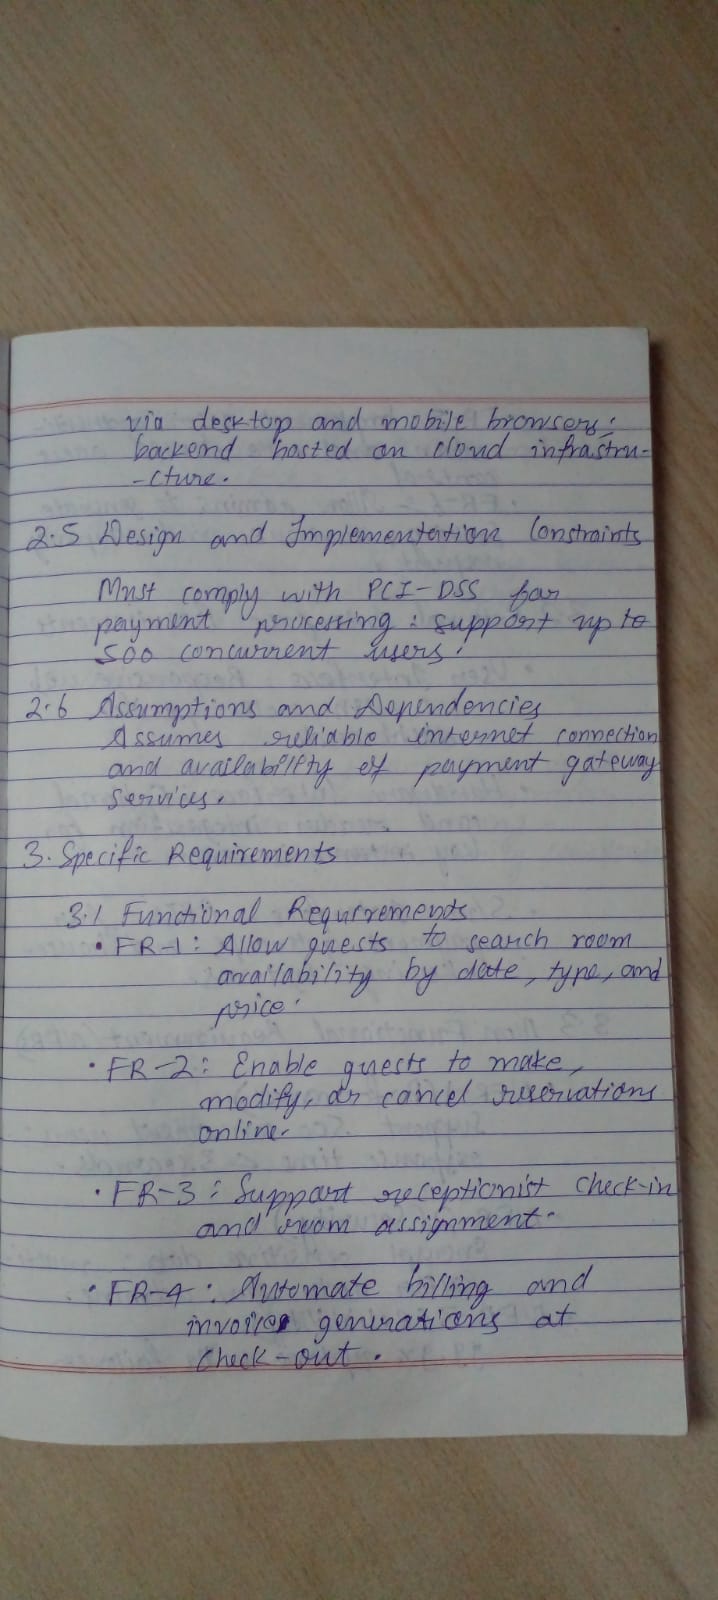 via desktop and mobile browsers;
backend hosted on cloud infrastru-
-cture.
2.5 Design and Implementation Constraints
Must comply with PCI-DSS for
payment processing: support up to
500 concurrent users.
2.6 Assumptions and Dependencies
Assumes reliable internet connection
and availability of payment gateway
services.
3. Specific Requirements
3.1 Functional Requirements
• FR-1: Allow guests to search room
availability by date, type, and
price.
• FR-2: Enable guests to make,
modify, or cancel reservations
online.
• FR-3: Support receptionist check-in
and room assignment.
• FR-4: Automate billing and
invoice generations at
check-out.